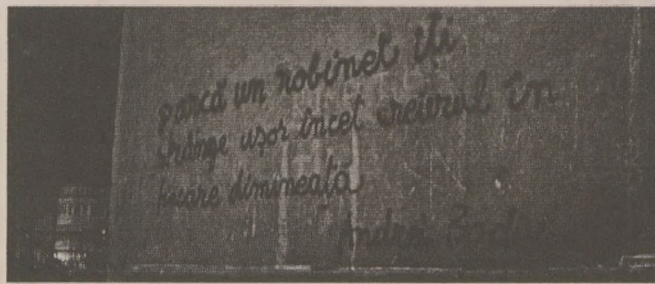 parcă un robinet îți
strânge ușor încet creierul în
fiecare dimineață
Andrei Bodiu